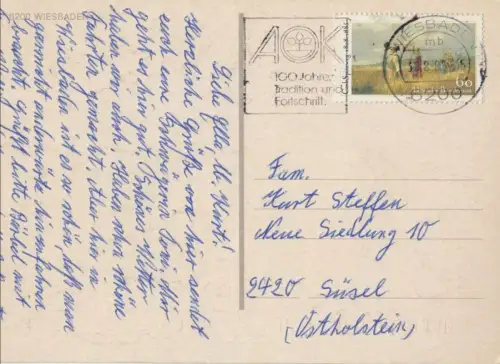 6200 WIESBADEN
Liebe Ella u. Kurt!
Herzliche Grüße von hier sendet
euch eure Schwägerin Toni. Mir
geht es hier gut. Schönes Wetter
haben wir auch. Haben schon schöne
Fahrten gemacht. Aber hier in
Wiesbaden ist es so schön daß man
garnicht anderswo hinzufahren
braucht. grüßt bitte Bärbel mit
AOK
100 Jahre
Tradition und
Fortschritt.
Carl Spitzweg 1808-1885
60
WIESBADEN
mb
6200
Fam.
Kurt Steffen
Neue Siedlung 10
2420 Süsel
(Ostholstein)